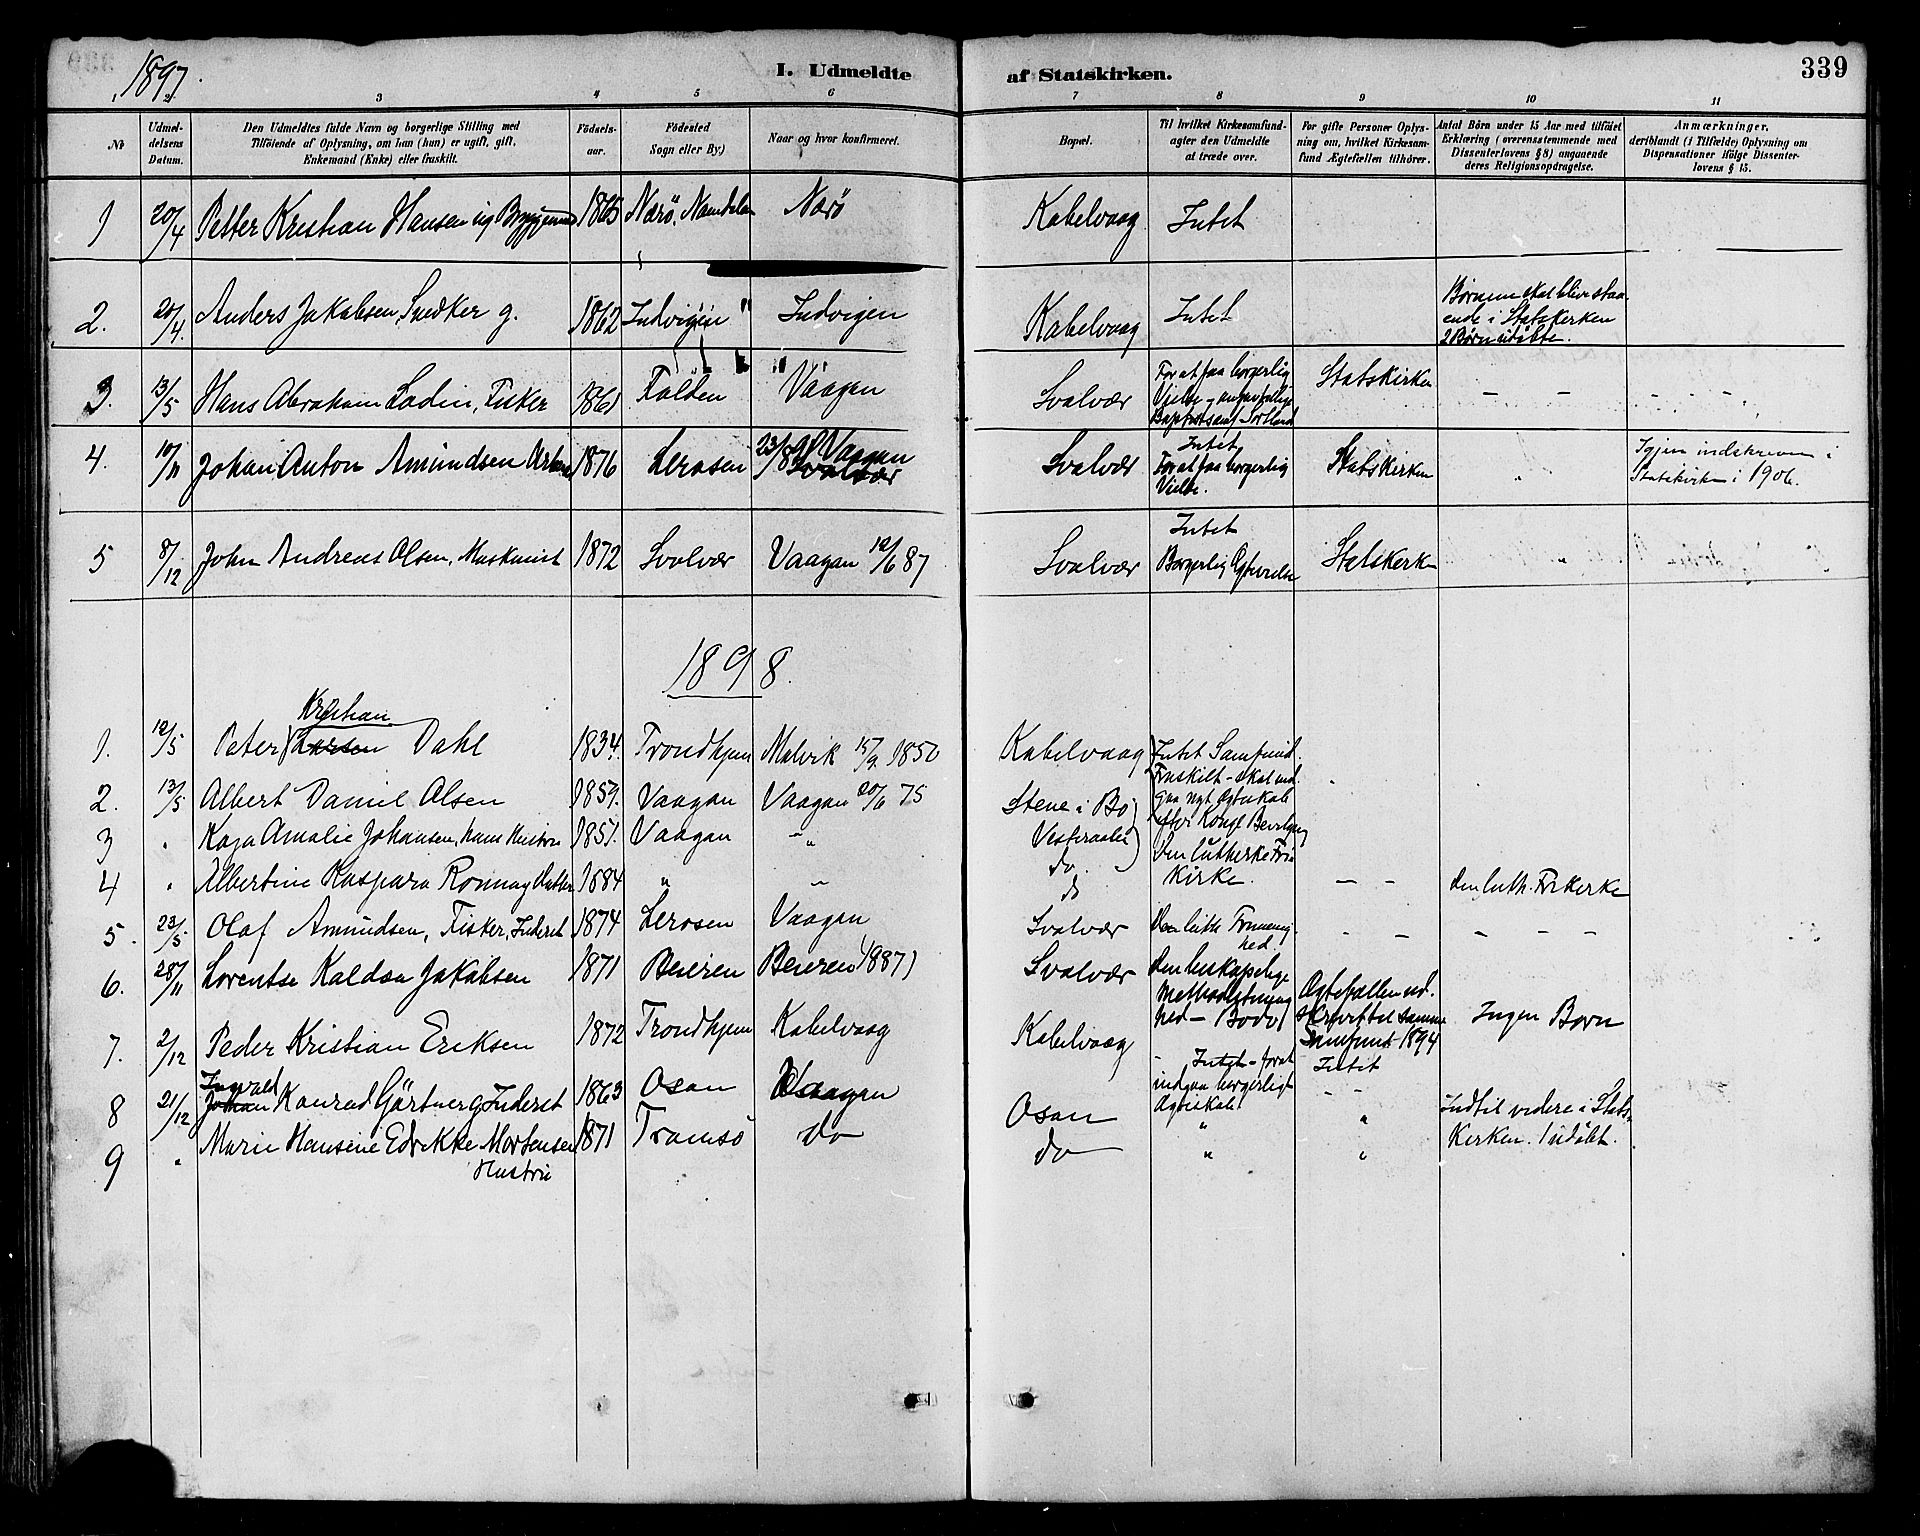 1897.
I. Udmeldte af Statskirken.
339
1 2 3 4 5 6 7 8 9 10 11
No
Udmel-
delsens
Datum.
Den Udmeldtes fulde Navn og borgerlige Stilling med
Tilføiende af Oplysning, om han (hun) er ugift, gift,
Enkemand (Enke) eller fraskilt.
Fødsels-
aar.
Fødested
Sogn eller By.)
Naar og hvor konfirmeret.
Bopæl.
Til hvilket Kirkesamfund-
agter den Udmeldte
at træde over.
For gifte Personer Oplys-
ning om, hvilket Kirkesam-
fund Ægtefællen tilhører.
Antal Børn under 15 Aar med tilføiet
Erklæring (overensstemmende med
Dissenterlovens § 8) angaaende
deres Religionsopdragelse.
Anmærkninger,
deriblandt (i Tilfælde) Oplysning om
Dispensationer ifølge Dissenter-
lovens § 15.
1 20/4 Petter Kristian Hansen ug 1865 Nærö, Namdalen Nærö Kabelvaag Intet
2. 20/4. Anders Jakobsen, Snedker g. 1862 Indvigen Indvigen Kabelvaag Intet
Børnene skal blive staa-
ende i Statskerken
2 Børn udöbte.
3. 13/5 Hans Abraham Lodin, Fisker 1861 Folden " Vaagan Svolvær
For at faa borgerlig
Vielse
Baptistsamf Sortland
Statskirken - -
4. 10/11 Johan Anton Amundsen 1876 Lerosen 23/8 91 Vaagan Svolvær
Intet
For at faa borgerlig
Vielse.
Statskirken "
Igjen indskreven i
Statskirken i 1906.
5 8/12 John Andreas Olsen, Maskinist 1872 Svolvær Vaagan 12/6 87 Svolvær
Intet
Borgerlig
Statskerk "
1898.
Kristian
1. 12/5 Peter Larsen Dahl 1834. Trondhjem Malvik 15/9 1850 Kabelvaag Intet Samfund.
2. 13/5 Albert Daniel Olsen 1859. Vaagan Vaagan 20/6 75 Stene i Bø
Vesteraalen
Fraskilt - skal ind-
gaa nyt Ægteskab
efter Kongl Bevilgning
3 " Kaja Amalie Johansen, hans Hustru 1851. Vaagan " do.
Den lutherske Fri
Kirke.
4 " Albertine Kaspara Datter 1884 " " do - - den luth. Frikerke
5. 23/5 Olaf Amundsen, Fisker, Inderst 1874 Lerosen Vaagan Svolvær
Den luth
hed.
- - - - -
6. 28/11 Lorentse Kaldsa Jakobsen 1871 Beieren Beieren (1887) Svolvær
Den biskopelige
Methodistmenig
hed - Bodø
Ægtefællen ud.
skrevet til samme
Samfund 1894
Ingen Børn
7. 2/12 Peder Kristian Eriksen 1872 Trondhjem Kabelvaag Kabelvaag
Intet - for at
indgaa borgerligt
Ægteskab.
Intet
Ingvald
8 21/12 Johan Konrad Gärtner g, Inderst 1863 Osan Vaagan Osan " "
Indtil videre i Stats
Kerken. 1 udöbt.
9 " Marie Hansine Edrikke Mortensen 1871 Tromsö do do " "
Hustru